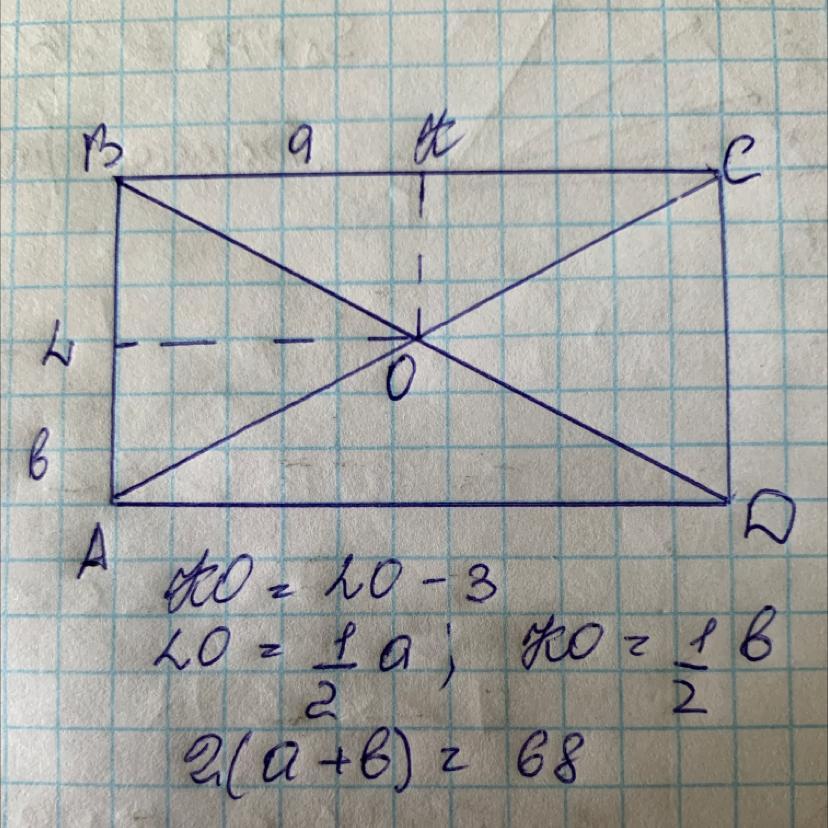 B a K C
L
O
в
A D
KO = LO - 3
LO = 1/2 a; KO = 1/2 в
2(a+в) = 68